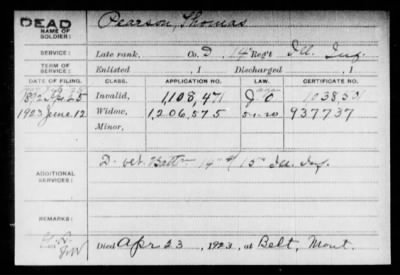 DEAD
NAME OF SOLDIER:
Pearson, Thomas
SERVICE:
Late rank, Co. D, 14 Reg't Ill. Inf.
TERM OF SERVICE:
Enlisted , 1 Discharged , 1
DATE OF FILING. CLASS. APPLICATION NO. CERTIFICATE NO.
Invalid, 1,108,471
1923 June 12 Widow, 1,206,575 937737
Minor,
ADDITIONAL SERVICES:
D. vet. Batt 14 & 15 Ill. Inf.
REMARKS:
Died Apr 23, 1923, at Belt, Mont.